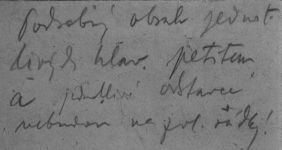 Podrobný obsah jednot.
livých hlav. petitem
a jednotlivé odstavce
nebudou na zvl. řádky!